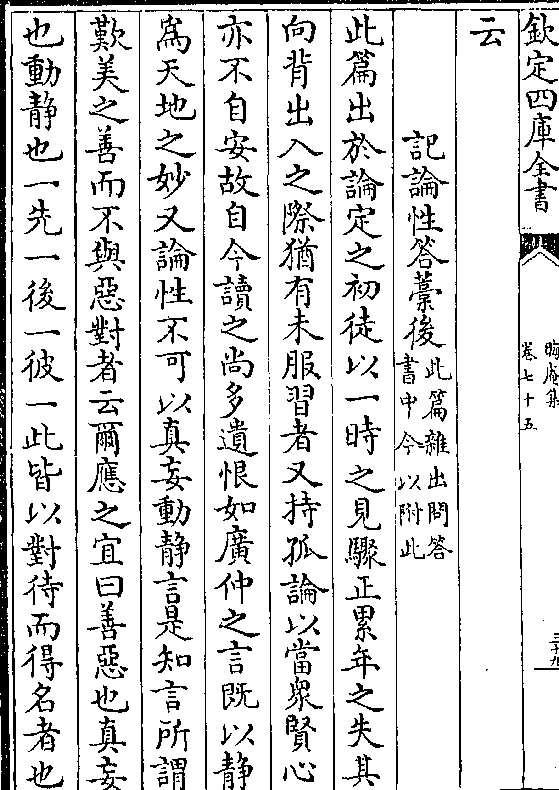 欽定四庫全書
晦庵集
卷七十五
三十九
云
記論性答藁後此篇雜出問答
書中今以附此
此篇出於論定之初徒以一時之見驟正累年之失其
向背出入之際猶有未服習者又持孤論以當衆賢心
亦不自安故自今讀之尚多遺恨如廣仲之言既以静
為天地之妙又論性不可以真妄動静言是知言所謂
歎美之善而不與惡對者云爾應之宜曰善惡也真妄
也動静也一先一後一彼一此皆以對待而得名者也